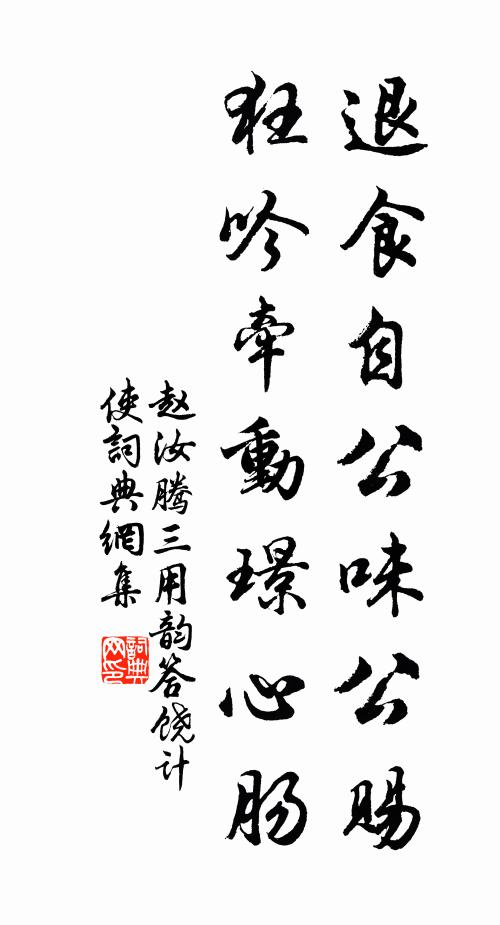 退食自公味公賜
狂吟牽動璟心肠
赵汝腾三用韵答饶计
使詞典網集
詞典
网印